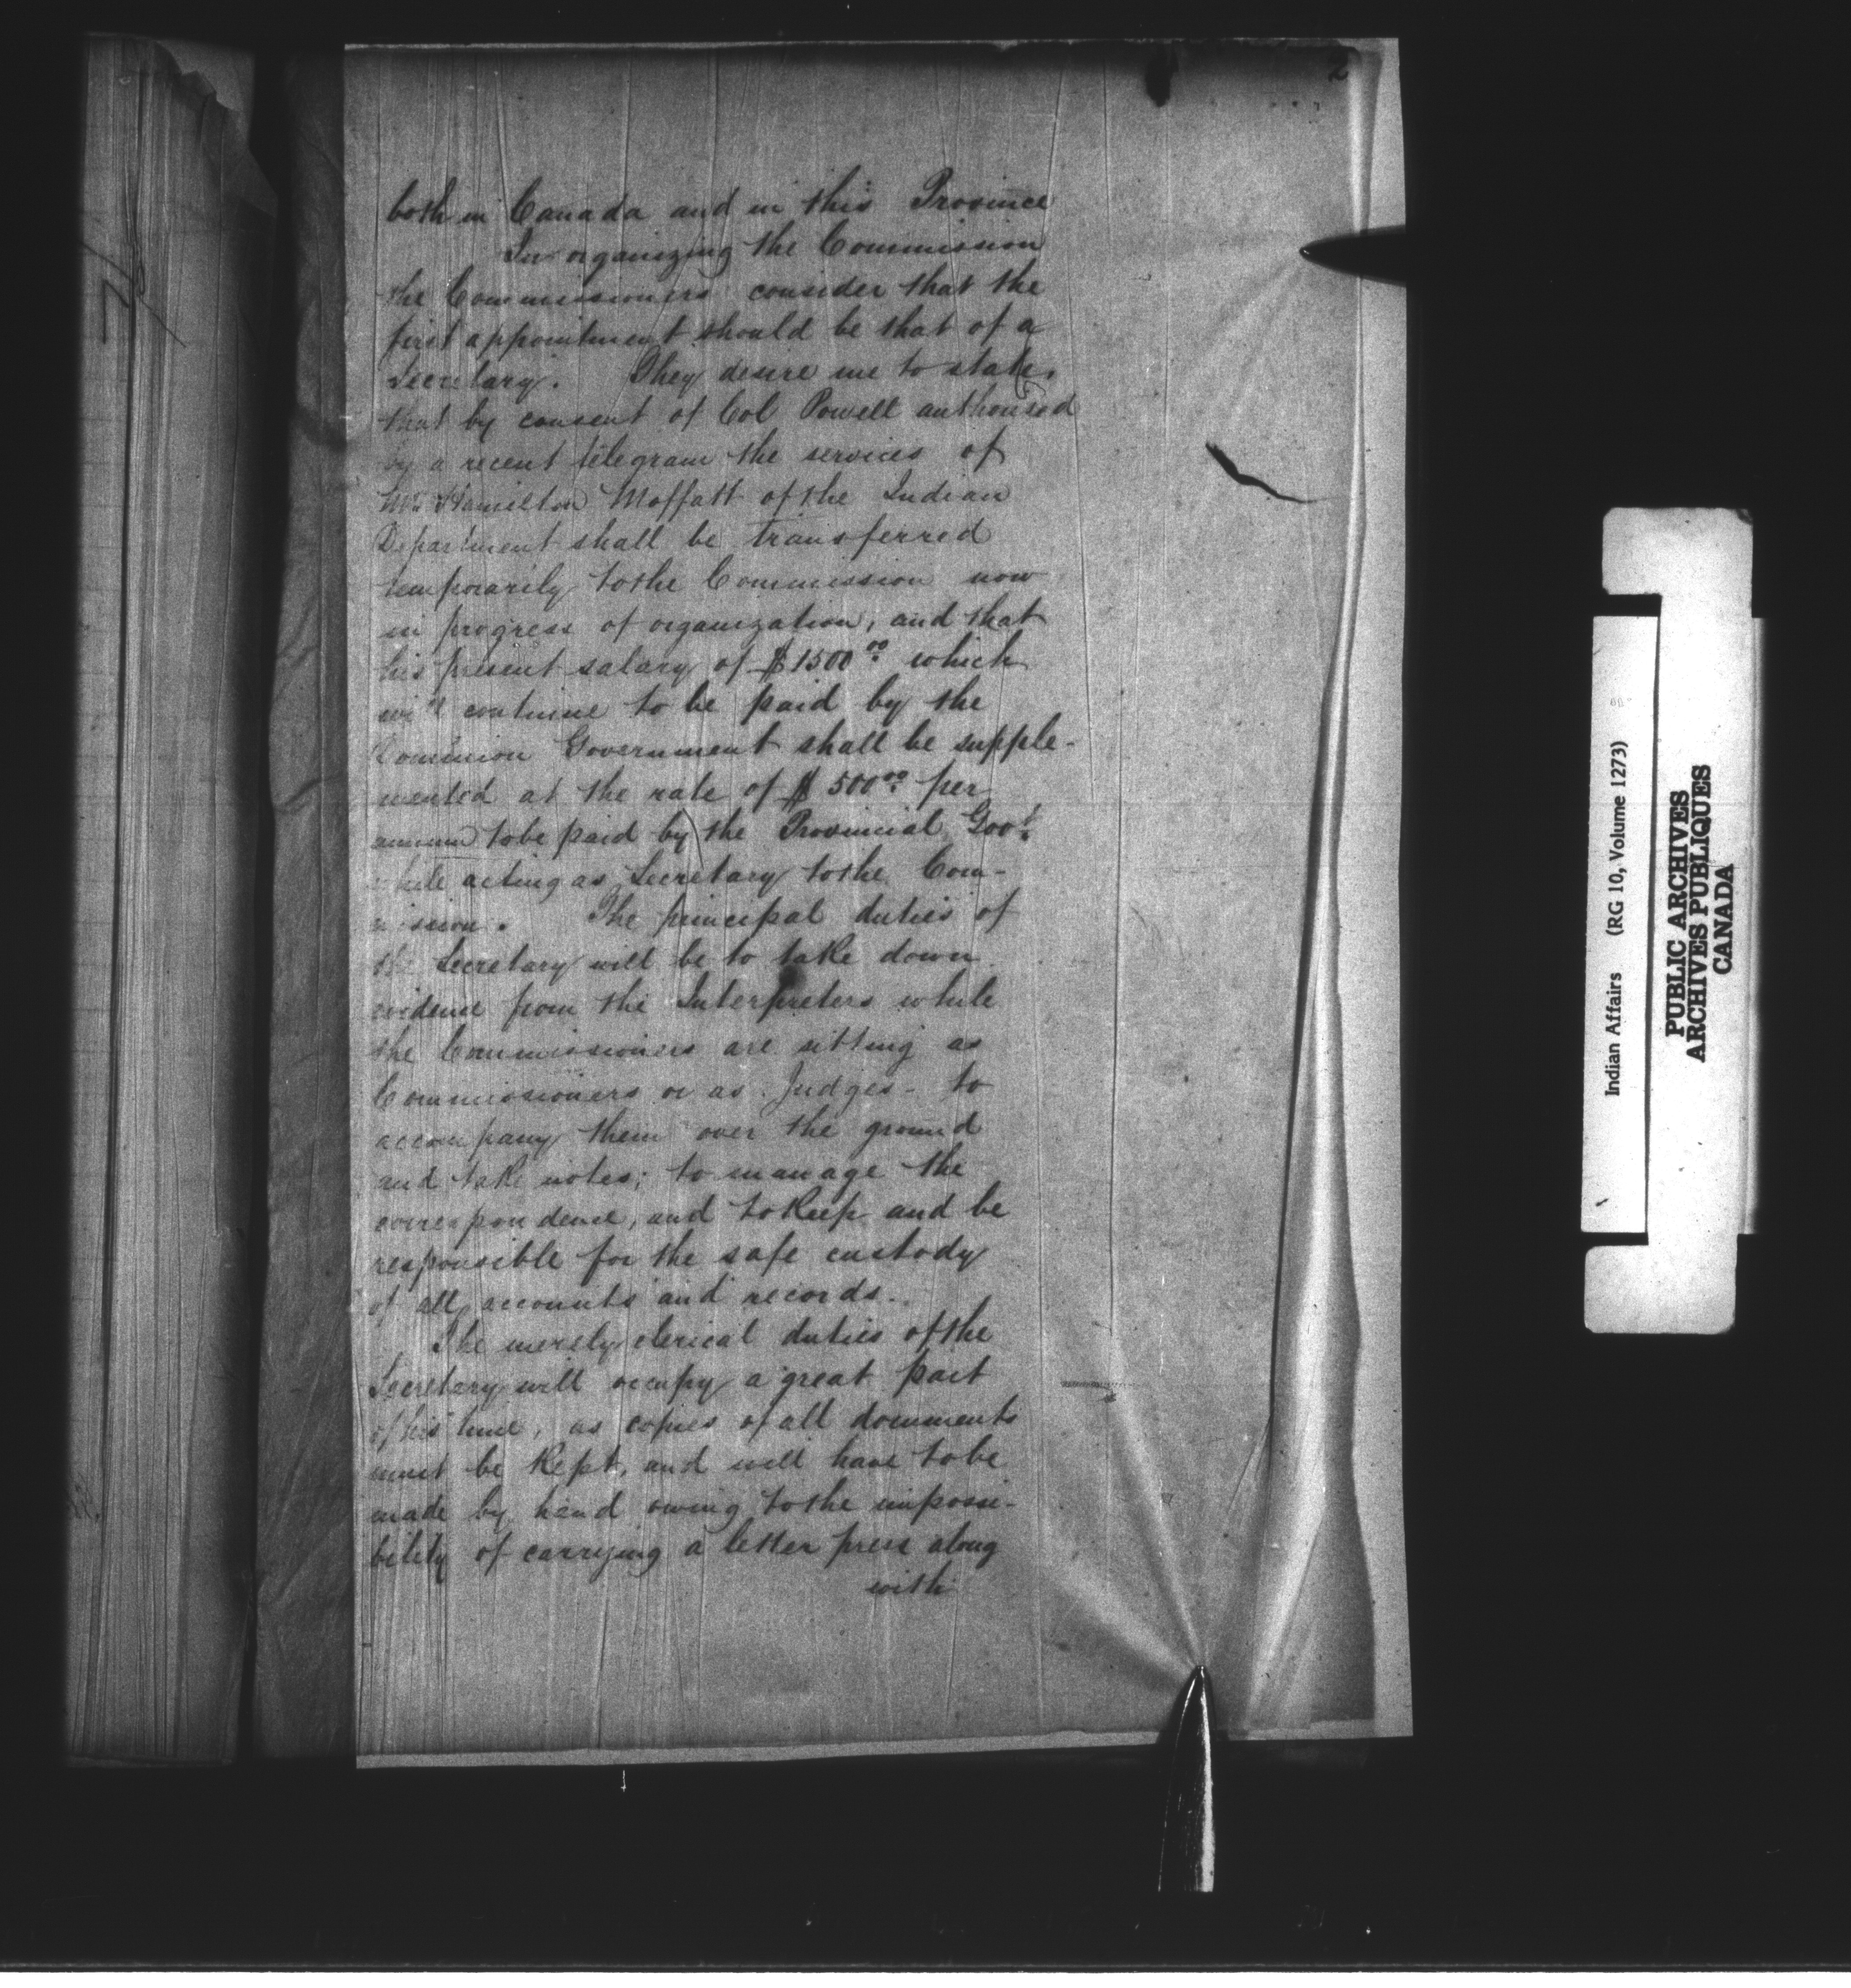 2
both in Canada and in this Province
In organizing the Commission
the Commissioners consider that the
first appointment should be that of a
Secretary. They desire me to state,
that by consent of Col Powell authorised
by a recent telegram the services of
Mr Hamilton Moffatt of the Indian
Department shall be transferred
temporarily to the Commission now
in progress of organization, and that
his present salary of $1500.00 which
will continue to be paid by the
Dominion Government shall be supple-
mented at the rate of $500.00 per
annum to be paid by the Provincial Govt.
while acting as Secretary to the Com-
mission. The principal duties of
the Secretary will be to take down
evidence from the Interpreters while
the Commissioners are sitting as
Commissioners or as Judges to
accompany them over the ground
and take notes; to manage the
correspondence, and to keep and be
responsible for the safe custody
of all accounts and records.
The merely clerical duties of the
Secretary will occupy a great part
of his time, as copies of all documents
must be kept, and will have to be
made by hand owing to the impossi-
bility of carrying a letter press along
with
Indian Affairs (RG 10, Volume 1273)
PUBLIC ARCHIVES
ARCHIVES PUBLIQUES
CANADA